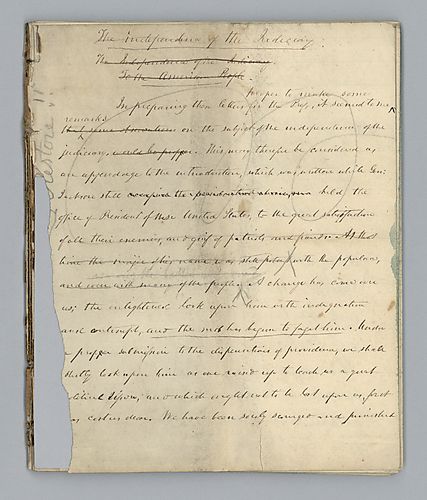 The independence of the Judiciary.
The Independence of the Judiciary
To the American People
proper to make some
In preparing these letters for the Press, it seemed to me
remarks
on the subject of the independence of the
judiciary, would be proper. This may therefore be considered as
an appendage to the introduction, which was written while Gen:
Jackson still occupied the presidential chair, held the
office of President of these United States, to the great satisfaction
of all their enemies, and grief of patriots and
with the populace,
and even with many of the people. A change has come over
us; the enlightened look upon him with indignation
and contempt, and the mob has begun to forget him. Under
a proper submission to the dispensations of providence, we shall
shortly look upon him as one raised up to teach us a great
political lesson, and which ought not to be lost upon us, for it
has cost us dear. We have been sorely scourged and punished
Restore it